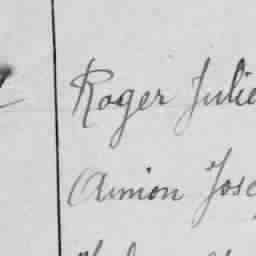 Roger Julie
Aimon Jose